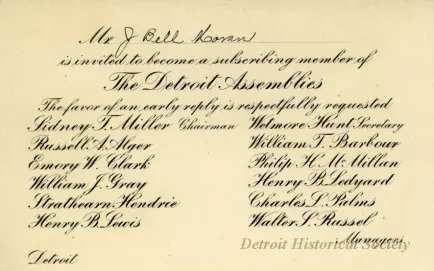 Mr. J Bell Moran
is invited to become a subscribing member of
The Detroit Assemblies
The favor of an early reply is respectfully requested
Sidney T. Miller Chairman Wetmore Hunt Secretary
Russell A. Alger William T. Barbour
Emory W. Clark Philip H. McMillan
William J. Gray Henry B. Ledyard
Strathearn Hendrie Charles L. Palms
Henry B. Lewis Walter S. Russel
Managers
Detroit
Detroit Historical Society